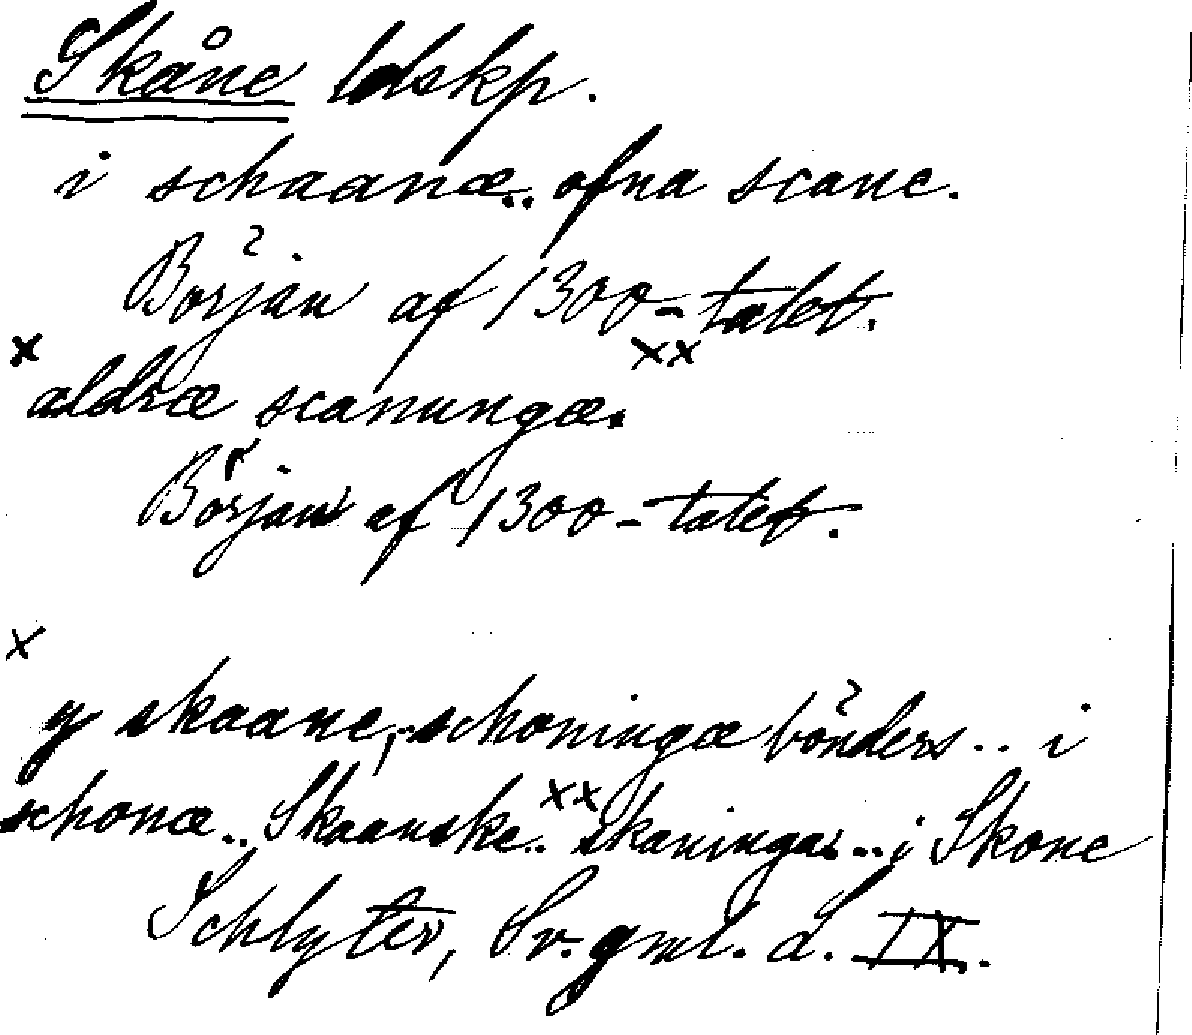 Skåne ldskp.
i schaanæ.. ofna scane.
Början af 1300-talet.
x xx
aldræ scanungæ.
Början af 1300-talet.
x
y skaane, schoningæ bönders .. i
xx
schonæ.. Skaanske.. skaningar .. i Skone
Schlyter, Sv. gml. L. IX.